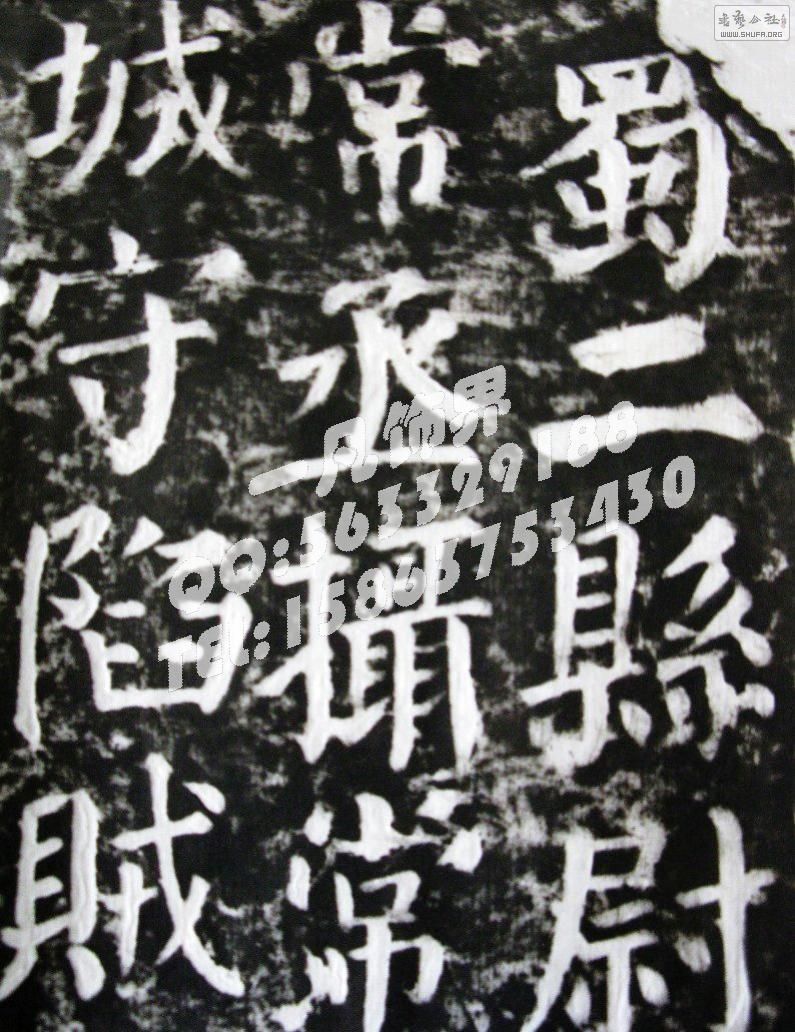 蜀二縣尉
常丞攝常
城守陷賊
一凡饰界
QQ:563329188
TEL:15865753430
書藝公社
WWW.SHUFA.ORG